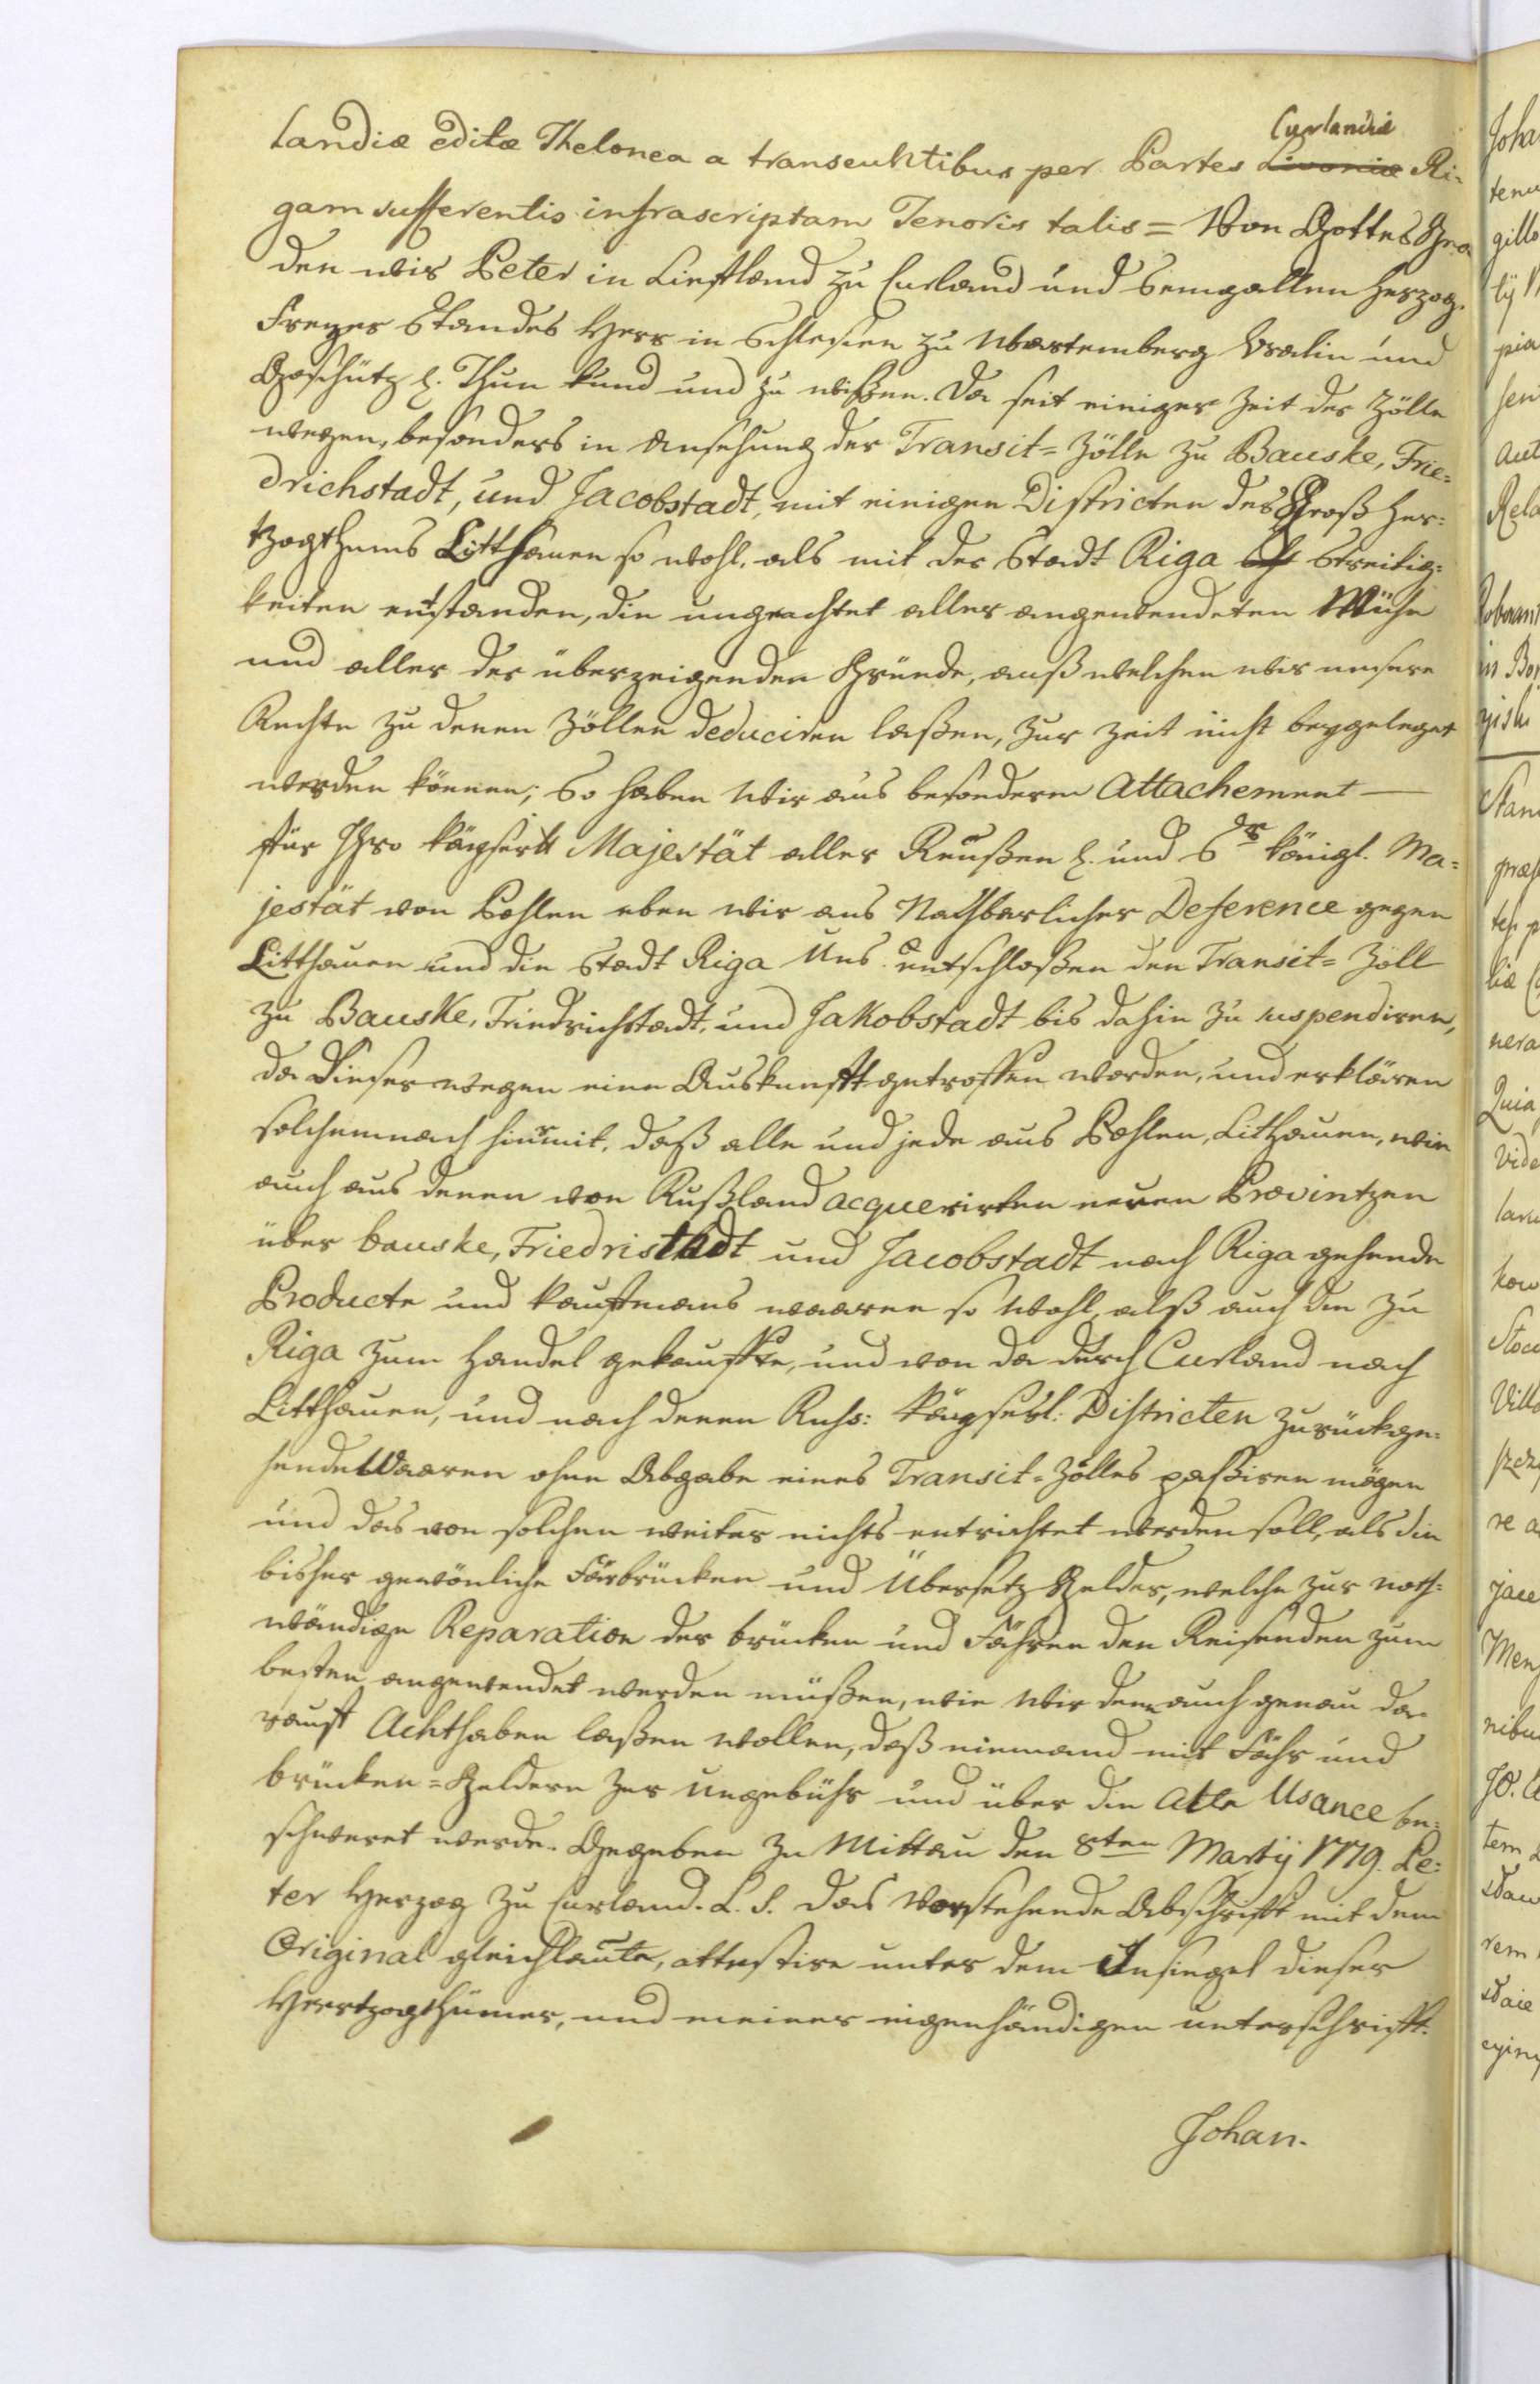 landiæ editæ Thelonea a transeuntibus per Partes Livoniæ Curlandiæ Ri=
gam sufferentis infrascriptam Tenoris talis = Von Gottes Gna
den wir Peter in Liefland zu Curland und Semgallen Herzog.
Freyer Standes Herr in Schlesien zu Wartemberg Bralin und
Goschütz p. Thun kund und zu wißen. Da seit einiger Zeit der Zölle
wegen, besonders in Ansehung der Transit= Zölle zu Bauske, Frie=
drichstadt, und Jacobstadt, mit einigen Districten des Groß Her=
tzogthums Litthauen so wohl, als mit der Stadt Riga Streitig=
keiten entstanden, die ungeachtet aller angewendeten Mühe
und aller der überzeigenden Gründe, auß welchen wir unsere
Rechte zu denen Zöllen deduciren laßen, zur Zeit nicht beygeleget
werden können; So haben Wir aus besonderem Attachement
für Ihro Kayserl Majestät aller Reußen p. und Sr Königl. Ma=
jestät von Pohlen eben wie aus Nachbarlicher Deference gegen
Litthauen und die Stadt Riga Uns entschloßen den Transit= Zoll
zu Bauske, Friedrichstadt, und Jakobstadt bis dahin zu suspendiren,
da dieserwegen eine Auskunfft getroffen worden, und erklären
solchemnach hiermit, daß alle und jede aus Pohlen, Lithauen, wie
auch aus denen von Rußland acquerirten neuen Provintzen
über bauske, Friedristadt und Jacobstadt nach Riga gehende
Producte und Kaufmans waaren so wohl, alß auch die zu
Riga zum Handel gekauffte, und von da durch Curland nach
Litthauen, und nach denen Russ: Kayserl: Districten zurückge=
hende Waaren ohne Abgabe eines Transit= Zolles paßiren mögen
und das von solchen weiter nichts entrichtet werden soll, als die
bisher gewönliche Färbrücken und Übersetz Gelder, welche zur noth=
wändige Reparation der brücken und Fähren den Reisenden zum
besten angewendet werden müßen, wie Wir denn auch genau da=
rauf Achthaben laßen wollen, daß niemand mit Fähr und
brücken = Geldern zur Ungebühr und über die Alte Usance be=
schweret werde. Gegeben zu Mittau den 8ten Martij 1779. Pe=
ter Herzog zu Curland. L. S. Das Vorstehende Abschrifft mit dem
Original gleichlaute, attestire unter dem Insiegel dieser
Herrtzogthümer, und meiner eigenhändigen unterschrifft.
Johan.